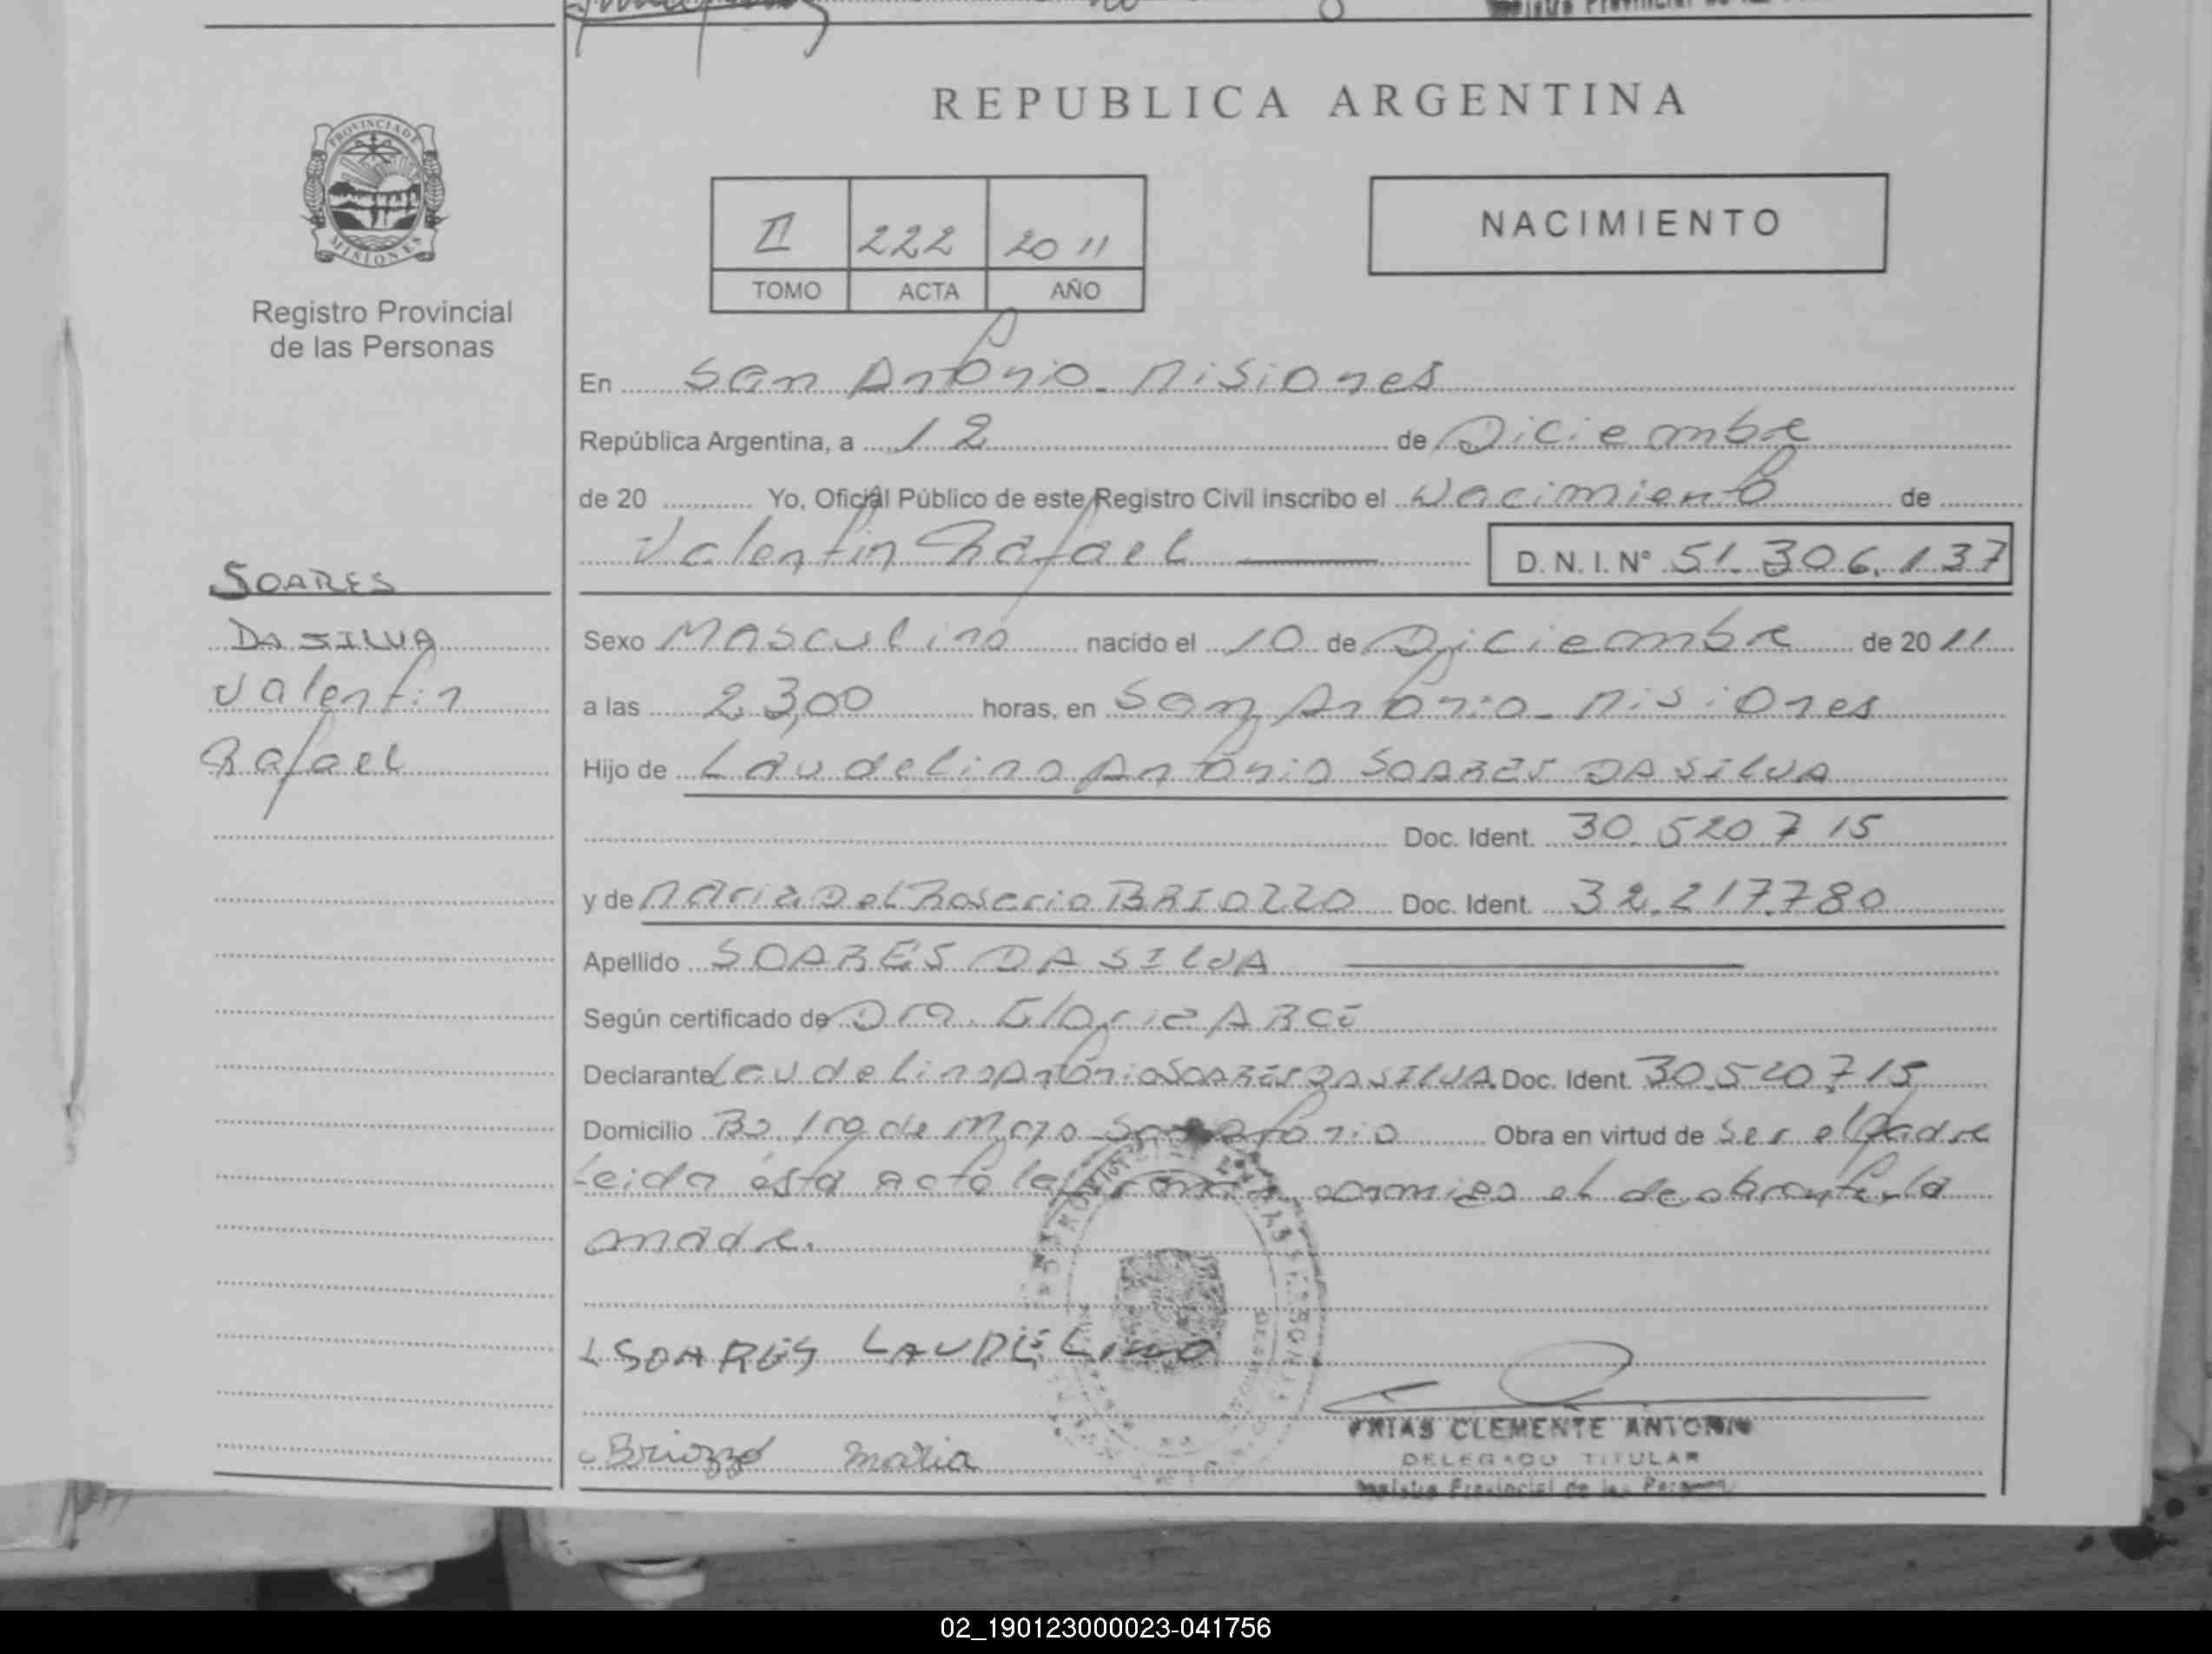 REPUBLICA ARGENTINA
PROVINCIA DE
MISIONES
Registro Provincial
de las Personas
II 222 20 11
TOMO ACTA AÑO
NACIMIENTO
En San Antonio - Misiones
República Argentina, a 12 de Diciembre
de 20 Yo, Oficial Público de este Registro Civil inscribo el Nacimiento de
Valentin Rafael D. N. I. N° 51.306.137
SOARES
DA SILVA
Valentin
Rafael
Sexo Masculino nacido el 10 de Diciembre de 2011
a las 23,00 horas, en San Antonio - Misiones
Hijo de Laudelino Antonio SOARES DA SILVA
Doc. Ident. 30.520.715
y de Maria Del Rosario BRIOZZO Doc. Ident. 32.217.780
Apellido SOARES DA SILVA
Según certificado de Dra. Gloria ARCE
Declarante Laudelino Antonio SOARES DA SILVA Doc. Ident. 30.520.715
Domicilio Bo 1ro de Mayo San Antonio Obra en virtud de Ser el Padre
Leida esta acta la firman conmigo el declarante, la
madre.
SOARES LAUDELINO
Briozzo Maria
FRIAS CLEMENTE ANTONIO
DELEGADO TITULAR
Registro Provincial de las Personas
02_190123000023-041756